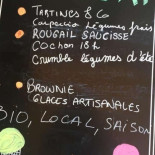 TARTINES & Co
Carpaccio légumes frais
ROUGAIL SAUCISSE
COCHON 18h
Crumble légumes d'été
BROWNIE
GLACES ARTISANALES
BIO, LOCAL, SAISON